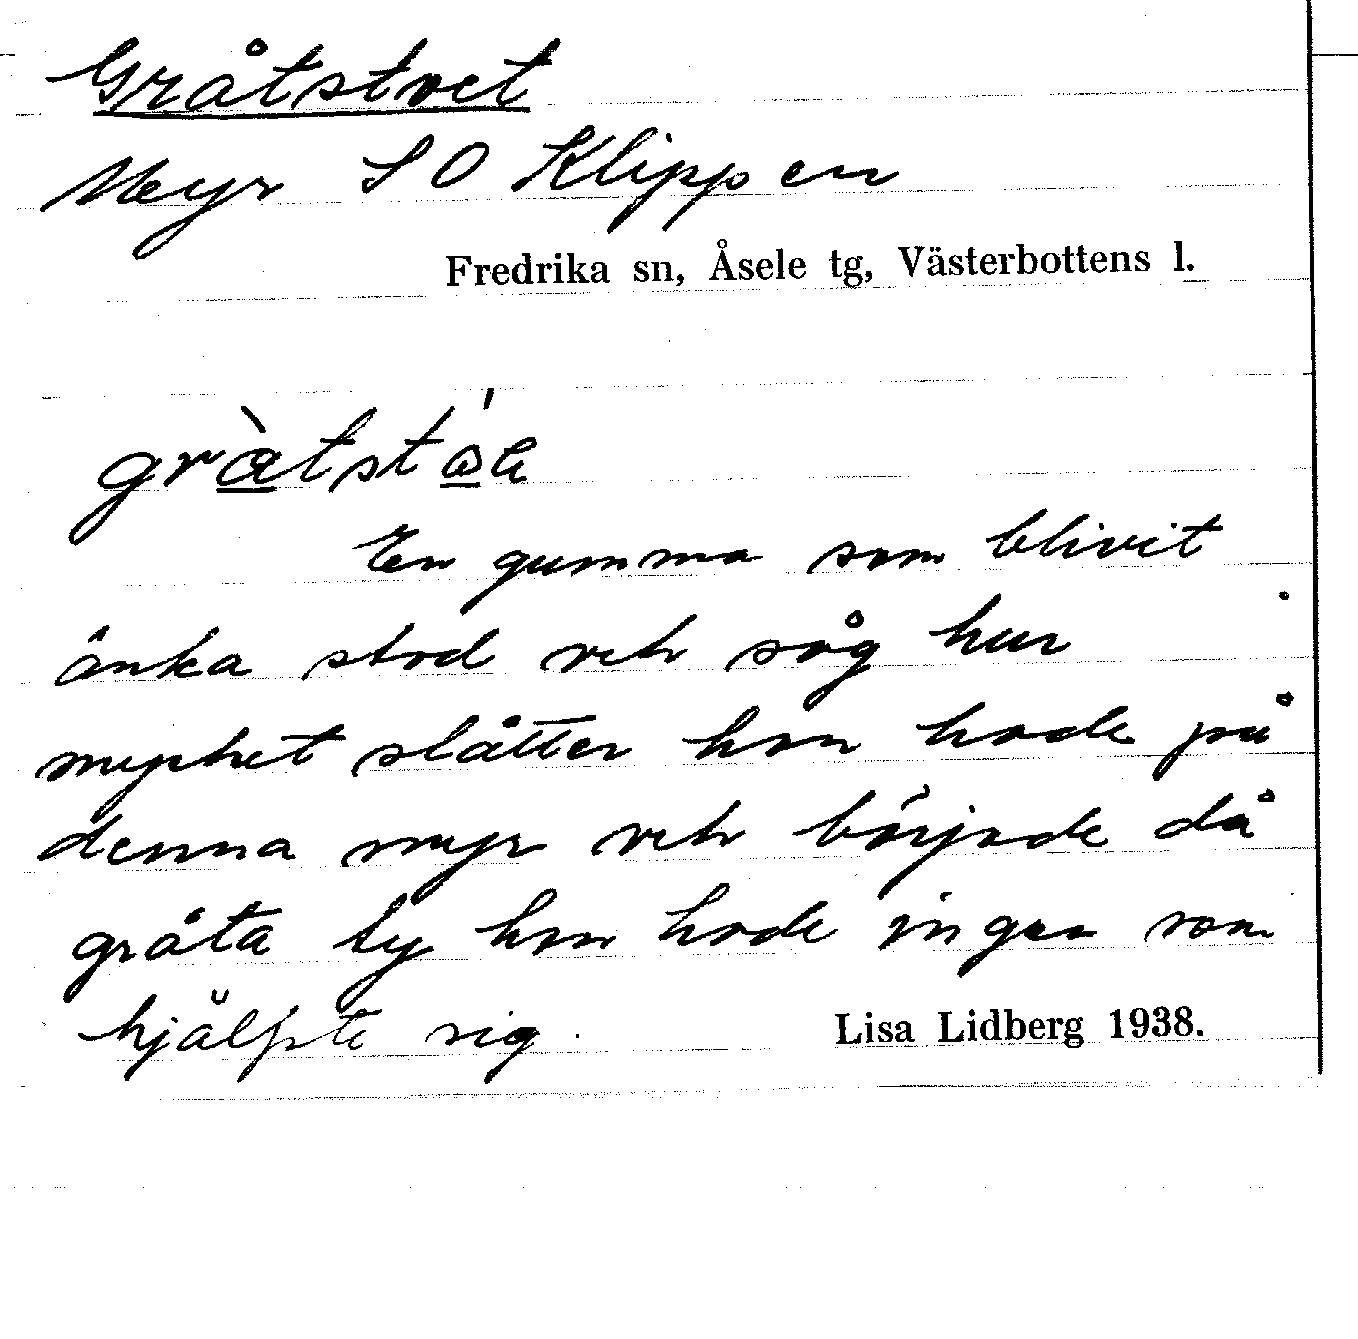 Gråtstoct
Myr S O Klippen
Fredrika sn, Åsele tg, Västerbottens l.
En gumma som blivit
änka stod och såg hur
mycket slåtter hon hade på
denna myr och började då
gråta ty hon hade ingen som
hjälpte sig.
Lisa Lidberg 1938.